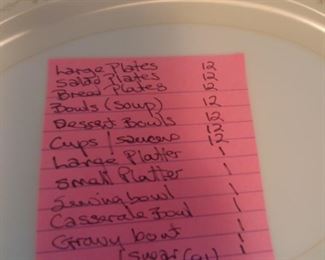 Large Plates 12
Salad Plates 12
Bread Plates 12
Bowls (Soup) 12
Dessert Bowls 12
Cups / saucers 12 12
Large Platter 1
Small Platter 1
Serving bowl 1
Casserole Bowl 1
Gravy boat 1